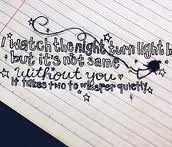 I watch the night turn light b
but it's not same
without you
it takes two to whisper quietly